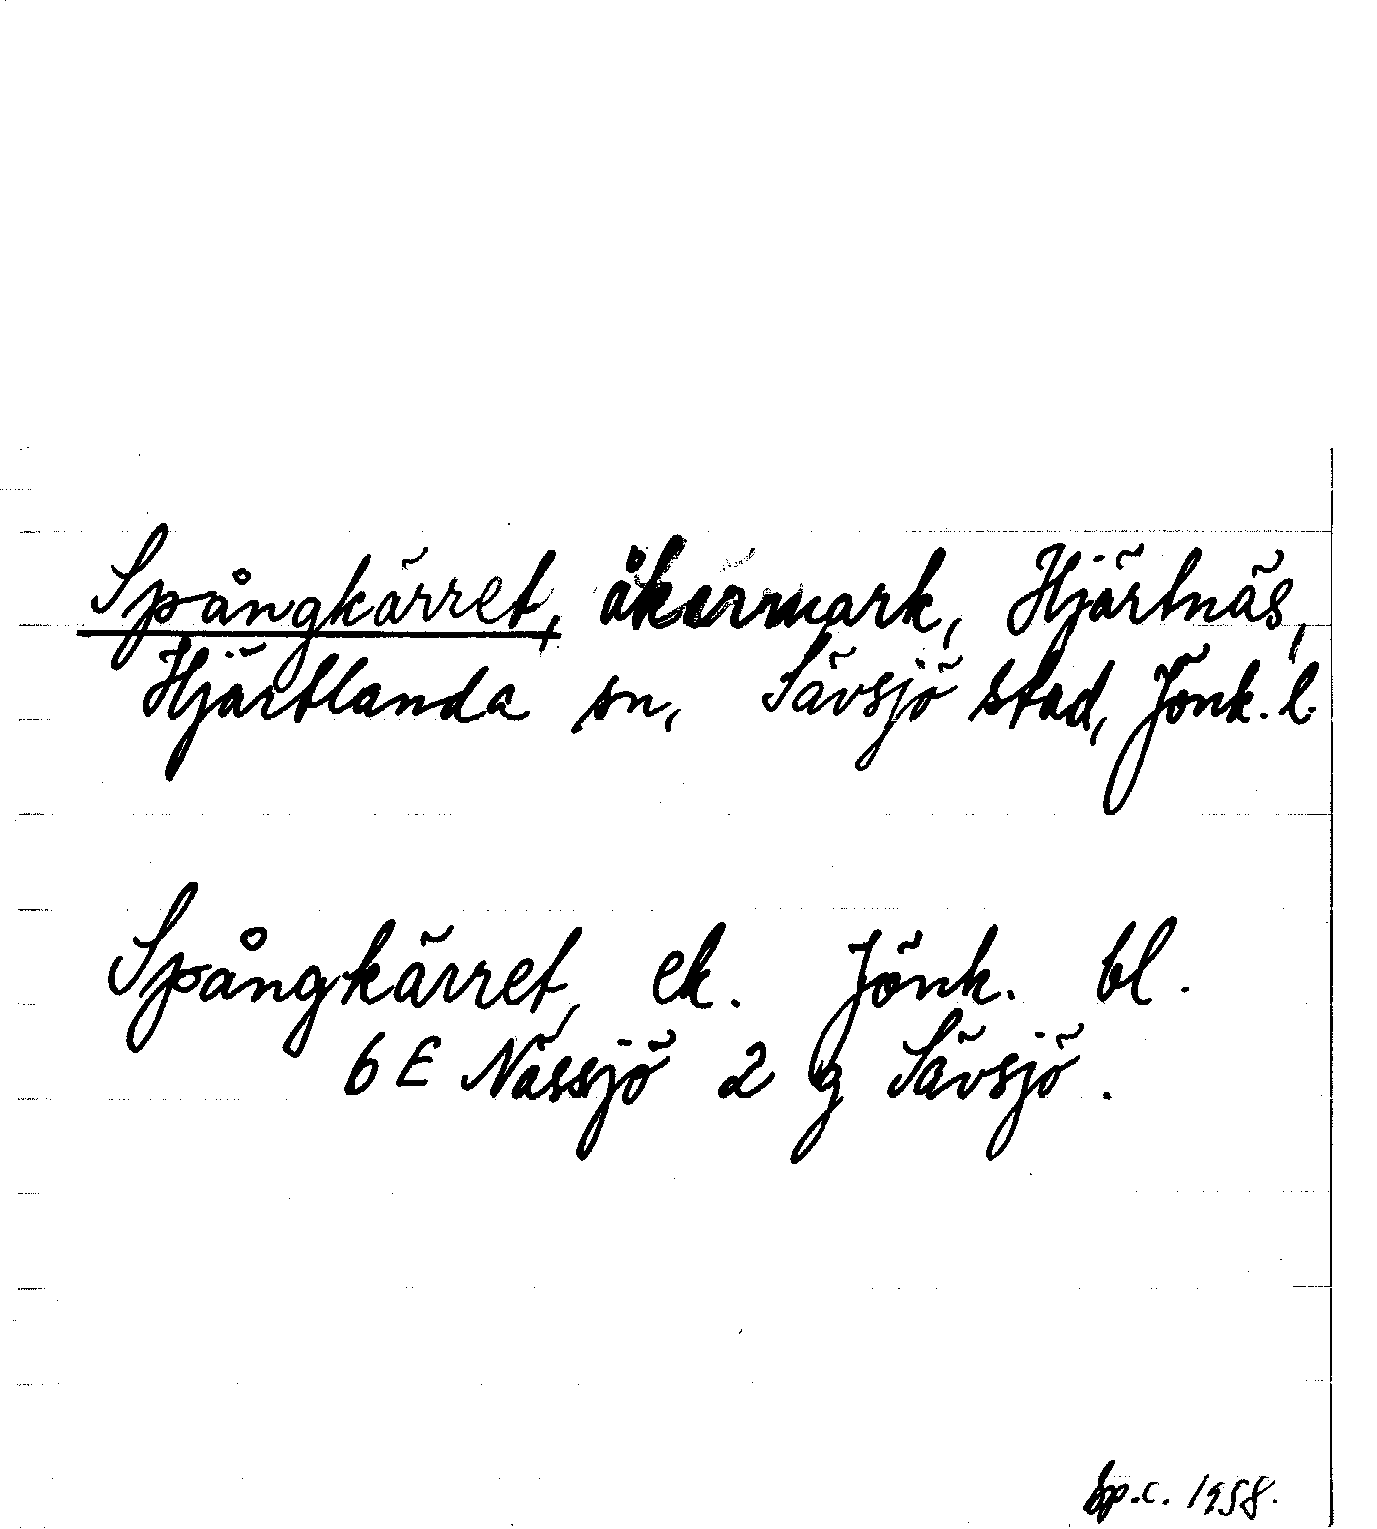 Spångkärret, åkermark, Hjärtnäs,
Hjärtlanda sn, Sävsjö stad, Jönk. l.
Spångkärret, ek. Jönk. bl.
6 E Nässjö 2 g Sävsjö.
Sp.c. 1958.